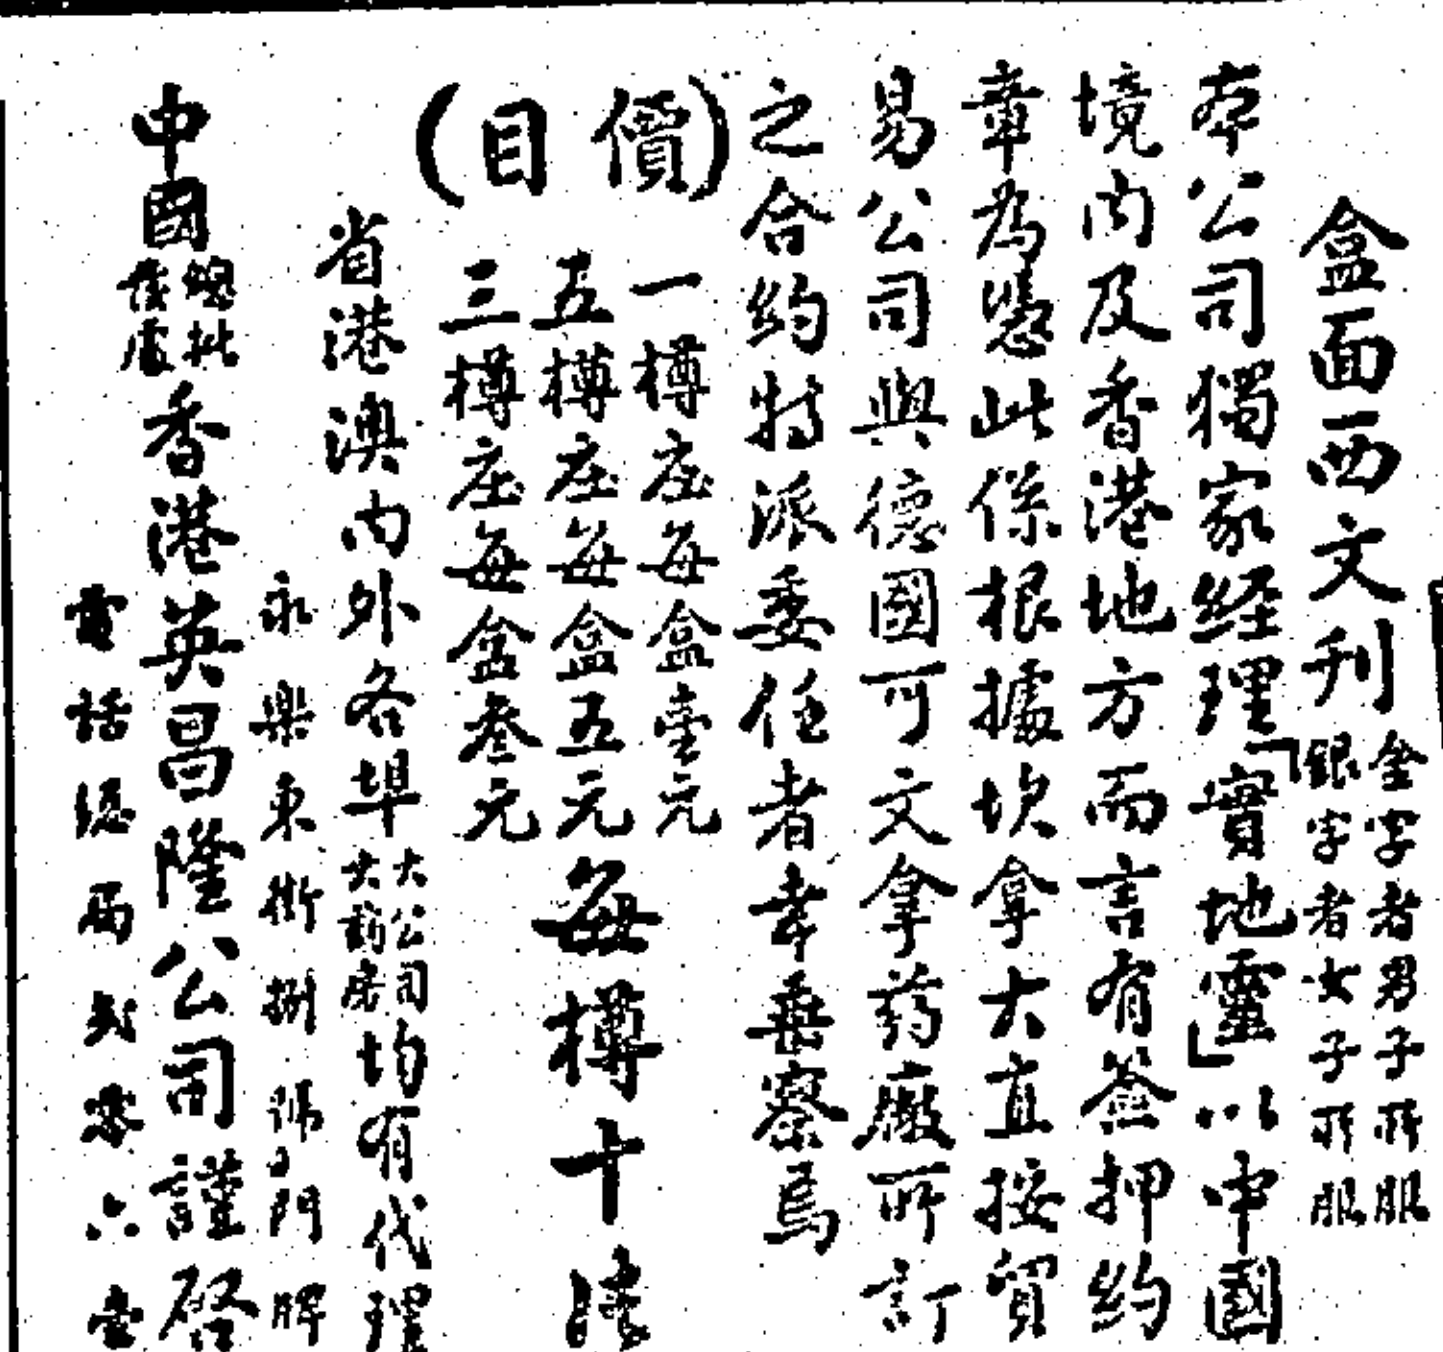 盒面西文刊
金字者男子所服
銀字者女子所服
本公司獨家經理「實地靈」以中國
境內及香港地方而言有簽押約
章為憑此係根據坎拿大直接貿
易公司與德國可文拿葯廠所訂
之合約特派委任者幸垂察焉
(價目)
一樽庄每盒壹元
五樽庄每盒五元
三樽庄每盒叁元
每樽十
省港澳內外各埠
大公司
大葯房
均有代理
永樂東街捌號門牌
中國
總批
發處
香港英昌隆公司謹啓
電話總局弍零六壹